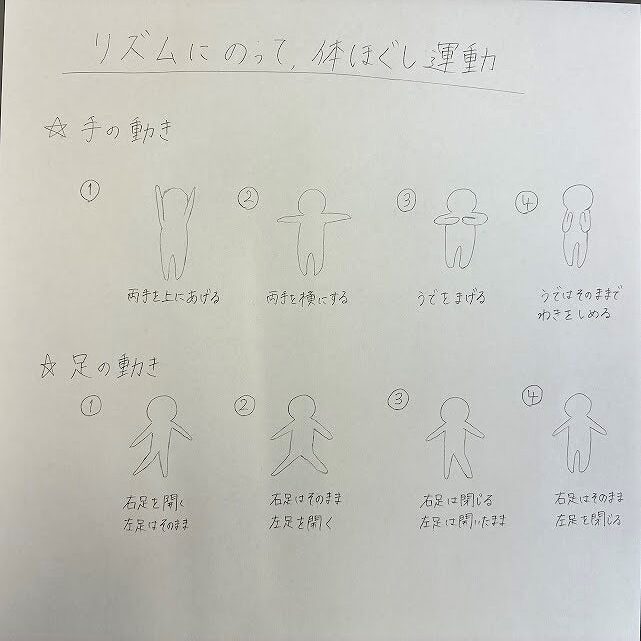 リズムにのって、体ほぐし運動
☆ 手の動き
① ② ③ ④
両手を上にあげる 両手を横にする うでをまげる うではそのままで
わきをしめる
☆ 足の動き
① ② ③ ④
右足を開く 右足はそのまま 右足は閉じる 右足はそのまま
左足はそのまま 左足を開く 左足は開いたまま 左足を閉じる